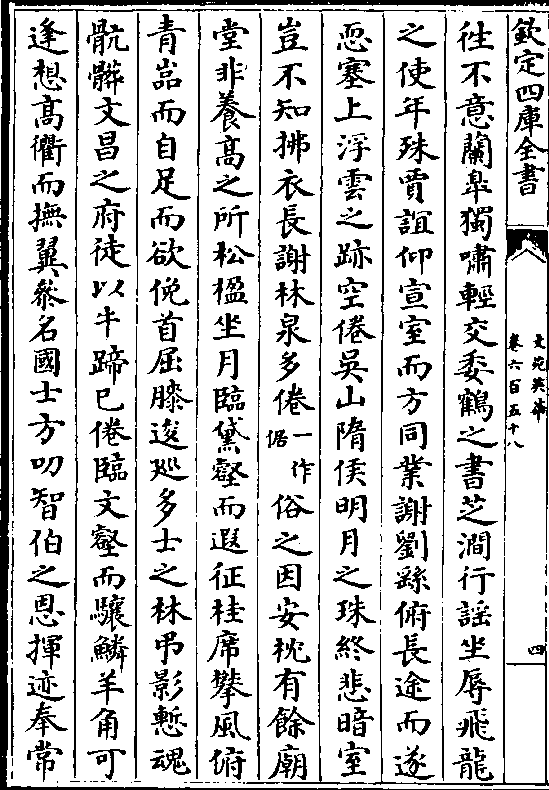 欽定四庫全書
文苑英華
卷六百五十八
四
徃不意蘭臯獨嘯輕交委鶴之書芝澗行謡坐辱飛龍
之使年殊賈誼仰宣室而方同業謝劉繇俯長途而遂
恧塞上浮雲之跡空倦吳山隋侯明月之珠終悲暗室
豈不知拂衣長謝林泉多倦一作倨俗之因安枕有餘廟
堂非養髙之所松楹坐月臨黛壑而遐征桂席攀風俯
青嵓而自足而欲俛首屈膝逡廵多士之林弔影慙魂
骯髒文昌之府徒以牛蹄已倦臨文壑而驤鱗羊角可
逢想髙衢而撫翼叅名國士方叨智伯之恩揮迹奉常